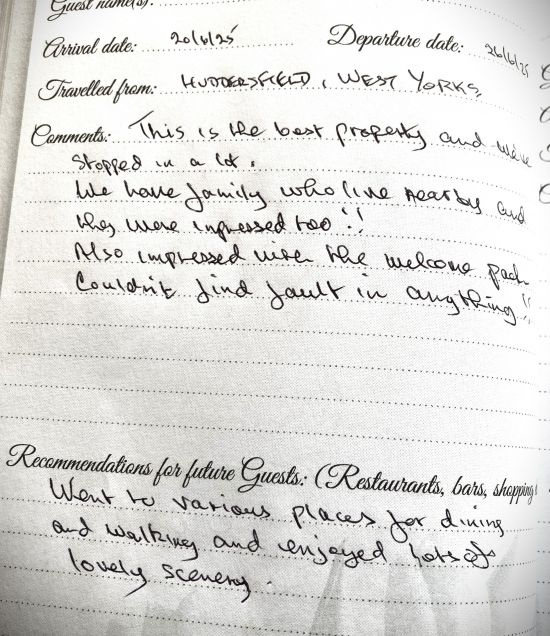 Guest name(s):
Arrival date: 20/6/25 Departure date: 26/6/25
Travelled from: HUDDERSFIELD, WEST YORKS,
Comments: This is the best property and we've
stopped in a lot.
We have family who live nearby and
they were impressed too !!
Also impressed with the welcome pack
Couldn't find fault in anything !!
Recommendations for future Guests: (Restaurants, bars, shopping
Went to various places for dining
and walking and enjoyed lots of
lovely scenery.